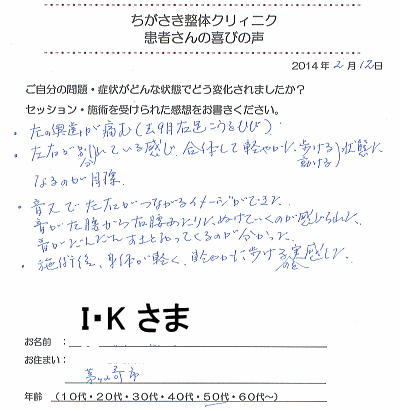 ちがさき整体クリィニク
患者さんの喜びの声
2014年2月12日
ご自分の問題・症状がどんな状態でどう変化されましたか？
セッション・施術を受けられた感想をお書きください。
・左の奥歯が痛む（去年9月右足こうをひび）
・左右が別れている感じ 合体して軽やかに歩ける 動ける 状態に
なるのが目標.
・音叉で左右がつながるイメージができた.
音が左腰から右腰あたりにぬけていくのが感じられた.
音がだんだん すーと
くるのが分かった.
・施術後、身体が軽く、軽やかに歩ける実感した.
I・K さま
お名前：
お住まい：
茅ヶ崎市
年齢 （10代・20代・30代・40代・50代・60代〜）